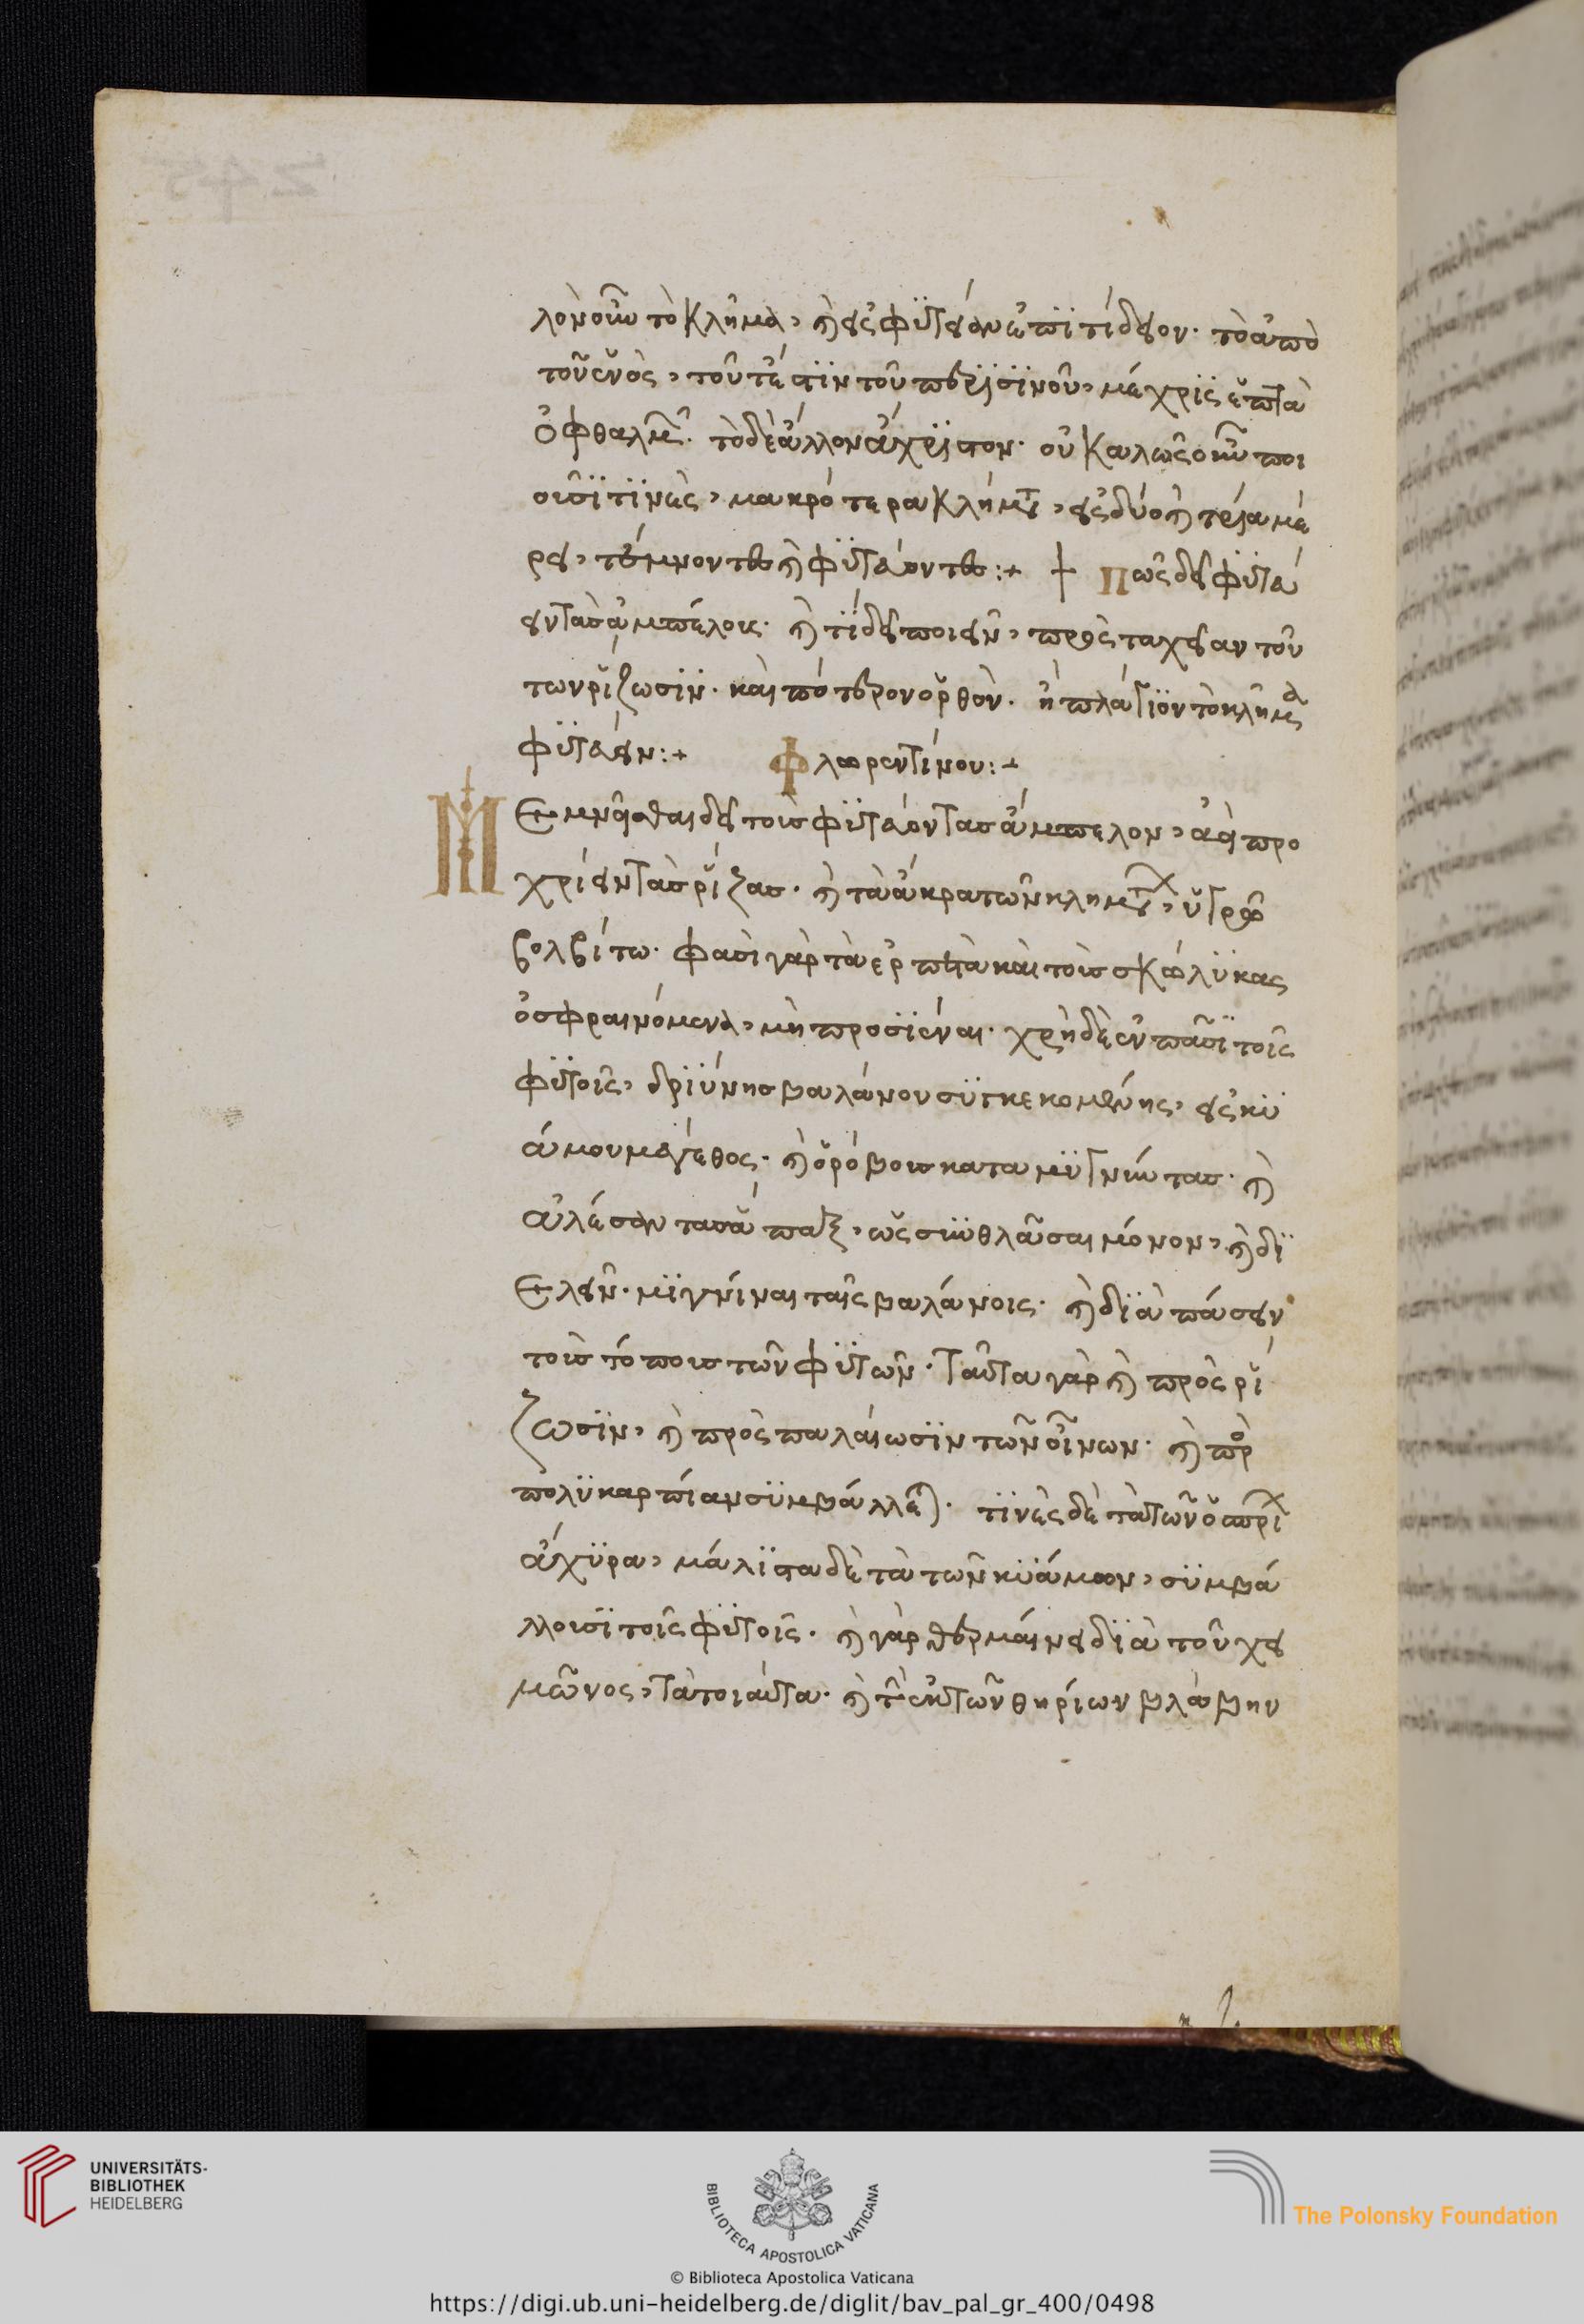 λον οὖν τὸ κλῆμα, καὶ εἰς φϋτείαν ἐπϊτίδειον· τὸ ἀπὸ
τοῦ ἑνὸς, τοῦτέστϊν τοῦ περϊσϊνοῦ, μέχρϊς ἑπτὰ
ὀφθαλμῶν· τὸ δὲ ἄλλον ἄχρϊστον· οὐ καλῶς οὖν ποι
οῦσϊ τϊνὲς, μακρότερα κλήματα, εἰς δύο ἢ τρία μέ
ρει, τέμνοντες καὶ φϋτεύοντες:+ + Πῶς δεῖ φϋτεύ
ειν τὰσ ἀμπέλους· καὶ τί δεῖ ποιεῖν, πρὸς ταχεῖαν τού
των ῥίζωσϊν· καὶ πότερον ὀρθὸν· ἢ πλάγϊον τὸ κλῆμα
φϋτεύειν:+ Φλωρεντίνου:+
Μεμνῆσθαι δεῖ τοὺσ φϋτεύοντασ ἄμπελον, ἀεὶ προ
χρίειν τὰσ ῥίζασ· καὶ τὰ ἄκρα τῶν κλημάτων, ὑγρῶ
βολβίτω· φασὶ γὰρ τὰ ἑρπετὰ καὶ τοὺσ σκώλϋκας
ὀσφραινόμενα, μὴ προσϊέναι· χρὴ δὲ ἐν πᾶσϊ τοῖς
φϋτοῖς, δρϋΐνησ βαλάνου συγκεκομμένης, εἰς κϋ
άμου μέγεθος· καὶ ὀρόβουσ καταμϋγνῦντας· καὶ
ἀλέσαντασ ἅπαξ, ὡς συνθλᾶσαι μόνον, καὶ δϊ
ελεῖν· μϊγνῦναι ταῖς βαλάνοις· καὶ διαπάσειν
τοὺσ τόπουσ τῶν φϋτῶν· ταῦτα γὰρ καὶ πρὸς ῥί
ζωσϊν, καὶ πρὸς παλαίωσϊν τῶν οἴνων· καὶ πρὸς
πολϋκαρπίαν σϋμβάλλεται· τϊνὲς δὲ τὰ τῶν ὀσπρίων
ἄχϋρα, μάλϊστα δὲ τὰ τῶν κϋάμων, σϋμβά
λλουσϊ τοῖς φϋτοῖς· καὶ γὰρ θερμαίνει δϊὰ τοῦ χει
μῶνος, τὰ τοιαῦτα· καὶ τὴν ἐκ τῶν θηρίων βλάβην
UNIVERSITÄTS-
BIBLIOTHEK
HEIDELBERG
BIBLIOTECA APOSTOLICA VATICANA
The Polonsky Foundation
© Biblioteca Apostolica Vaticana
https://digi.ub.uni-heidelberg.de/diglit/bav_pal_gr_400/0498